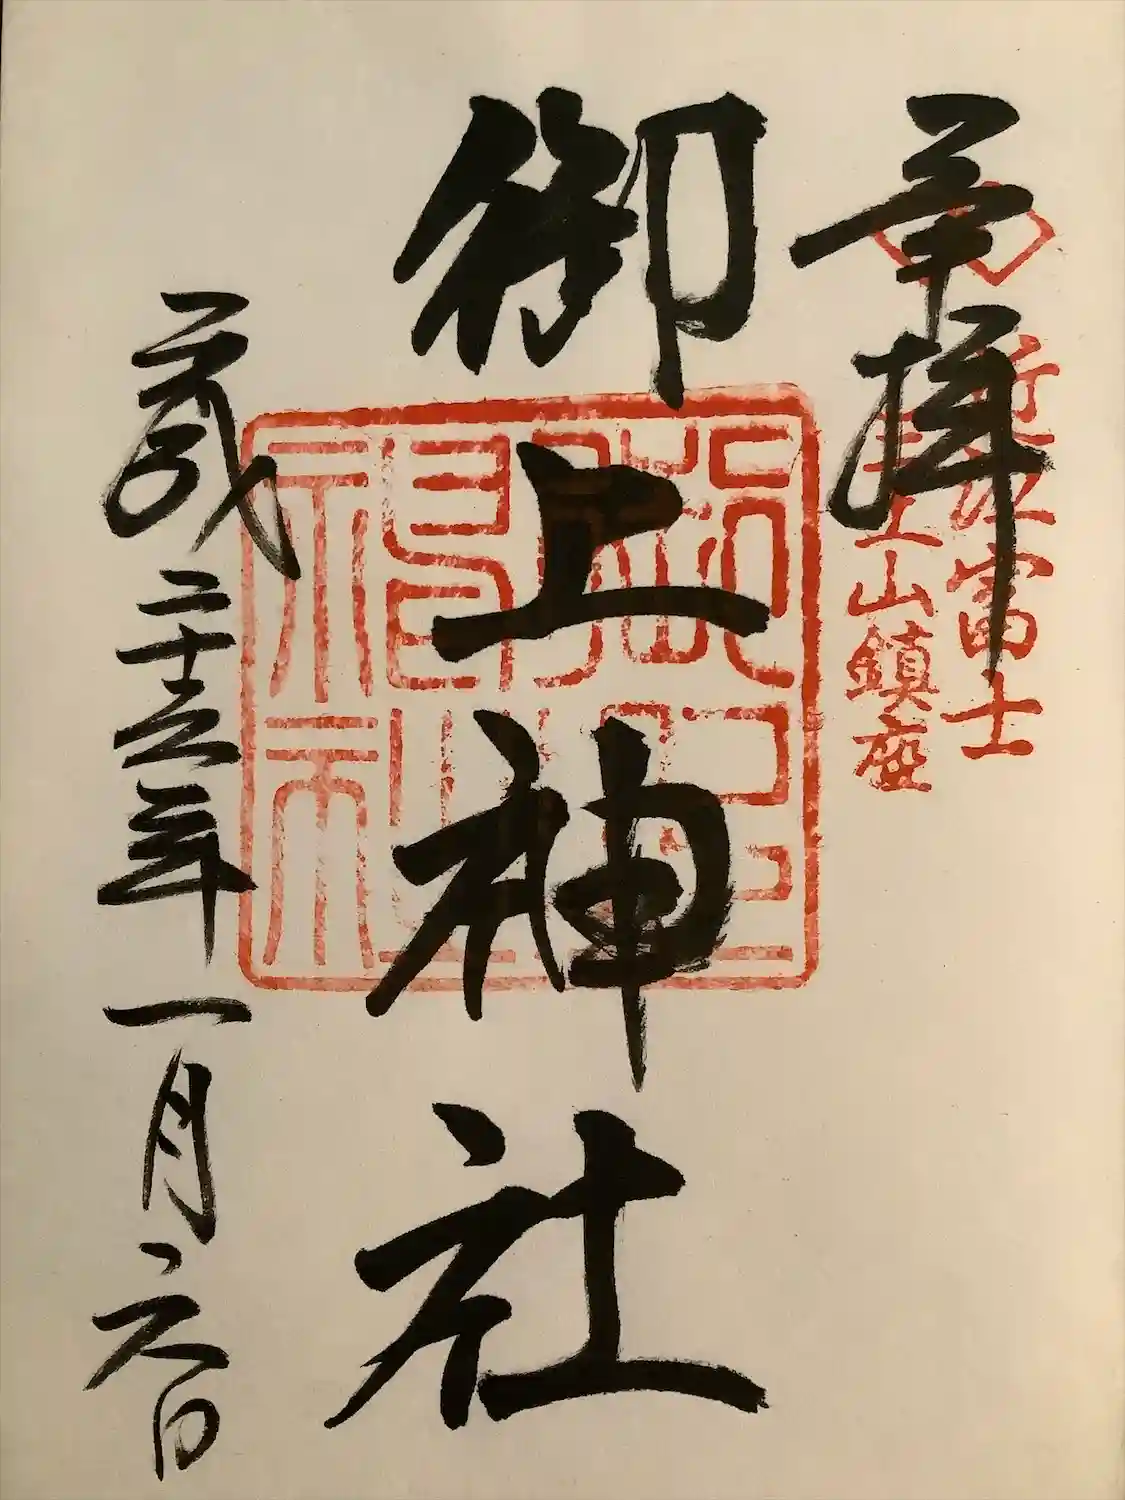 奉拝
近江富士
三上山鎮座
御上神社
御上神社
平成二十五年一月六日